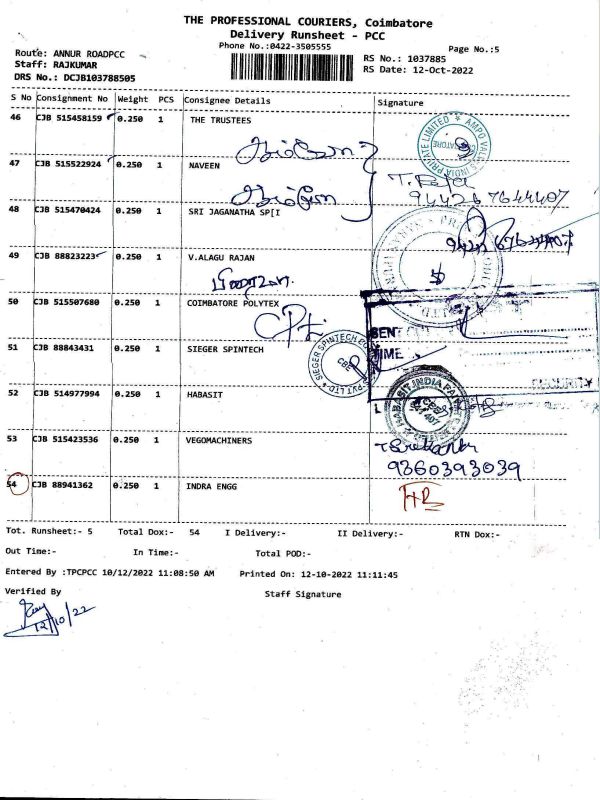 THE PROFESSIONAL COURIERS, Coimbatore
Delivery Runsheet - PCC
Phone No.:0422-3505555
Page No.:5
Route: ANNUR ROADPCC
Staff: RAJKUMAR
DRS No.: DCJB103788505
RS No.: 1037885
RS Date: 12-Oct-2022
S No Consignment No Weight PCS Consignee Details Signature
46 CJB 515458159 0.250 1 THE TRUSTEES
47 CJB 515522924 0.250 1 NAVEEN
944267644407
48 CJB 515470424 0.250 1 SRI JAGANATHA SP[I
49 CJB 88823223 0.250 1 V.ALAGU RAJAN
50 CJB 515507680 0.250 1 COIMBATORE POLYTEX
TIME
51 CJB 88843431 0.250 1 SIEGER SPINTECH
SECURITY
52 CJB 514977994 0.250 1 HABASIT
53 CJB 515423536 0.250 1 VEGOMACHINERS
9360393039
54 CJB 88941362 0.250 1 INDRA ENGG
Tot. Runsheet:- 5 Total Dox:- 54 I Delivery:- II Delivery:- RTN Dox:-
Out Time:- In Time:- Total POD:-
Entered By :TPCPCC 10/12/2022 11:08:50 AM Printed On: 12-10-2022 11:11:45
Verified By Staff Signature
12/10/22